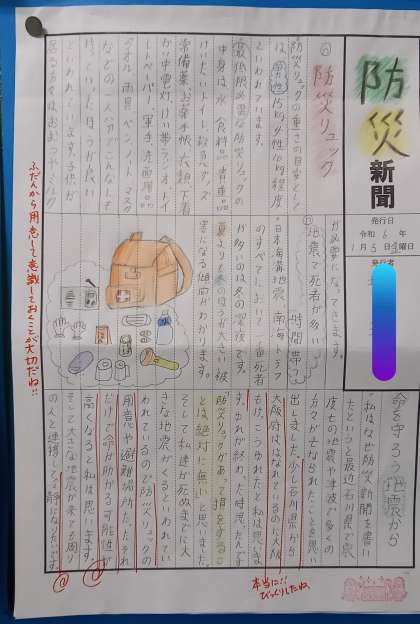 防災新聞
発行日
令和6年
1月5日金曜日
発行者
命を守ろう地震から
私はなぜ防災新聞を書い
たというと最近石川県で震
度七の地震、津波で多くの
方々がなくなられたことを思い
出しました。少し石川県から
大阪府ははなれているのに大阪
もけっこうゆれたと私は思いま
す。ゆれが終わった時思ったんです
防災リュックがあって損をすること
とは絶対に無いと思いました。
そして私達が死ぬまでに大
きな地震がくるといわれてい
われているので防災リュックの
用意や避難場所だったりそれ
だけで命が助かる可能性が
高くなると私は思います。
そして大きな地震が来ても周り
の人と連携して冷静になったらです。
⑥防災リュック
防災リュックの重さの目安として
は、男性15kg女性10kg程度
といわれています。
最低限必要な防災リュックの
中身は水、食料品、貴重品
けいたいトイレ、救急グッズ
常備薬、お薬手帳、衣類、下着
かい中電灯、けい帯ラジオ、トイ
レットペーパー、軍手、洗面用品
タオル、雨具、ペン、ノート、マスク
などの一人分でこんなにも
持っていったほうが良い
といわれています。子供が
居る方はおむつやミルク
が必要になってきます。
⑦地震で死者が多い時間帯
日本海溝地震、南海トラフ
のすべてにおいて一番死者
が多いのは冬の深夜です。
夏よりも冬のほうが大きい被
害になる傾向がわかります。
ふだんから用意して意識しておくことが大切だね!!
本当に!!
びっくりしたね